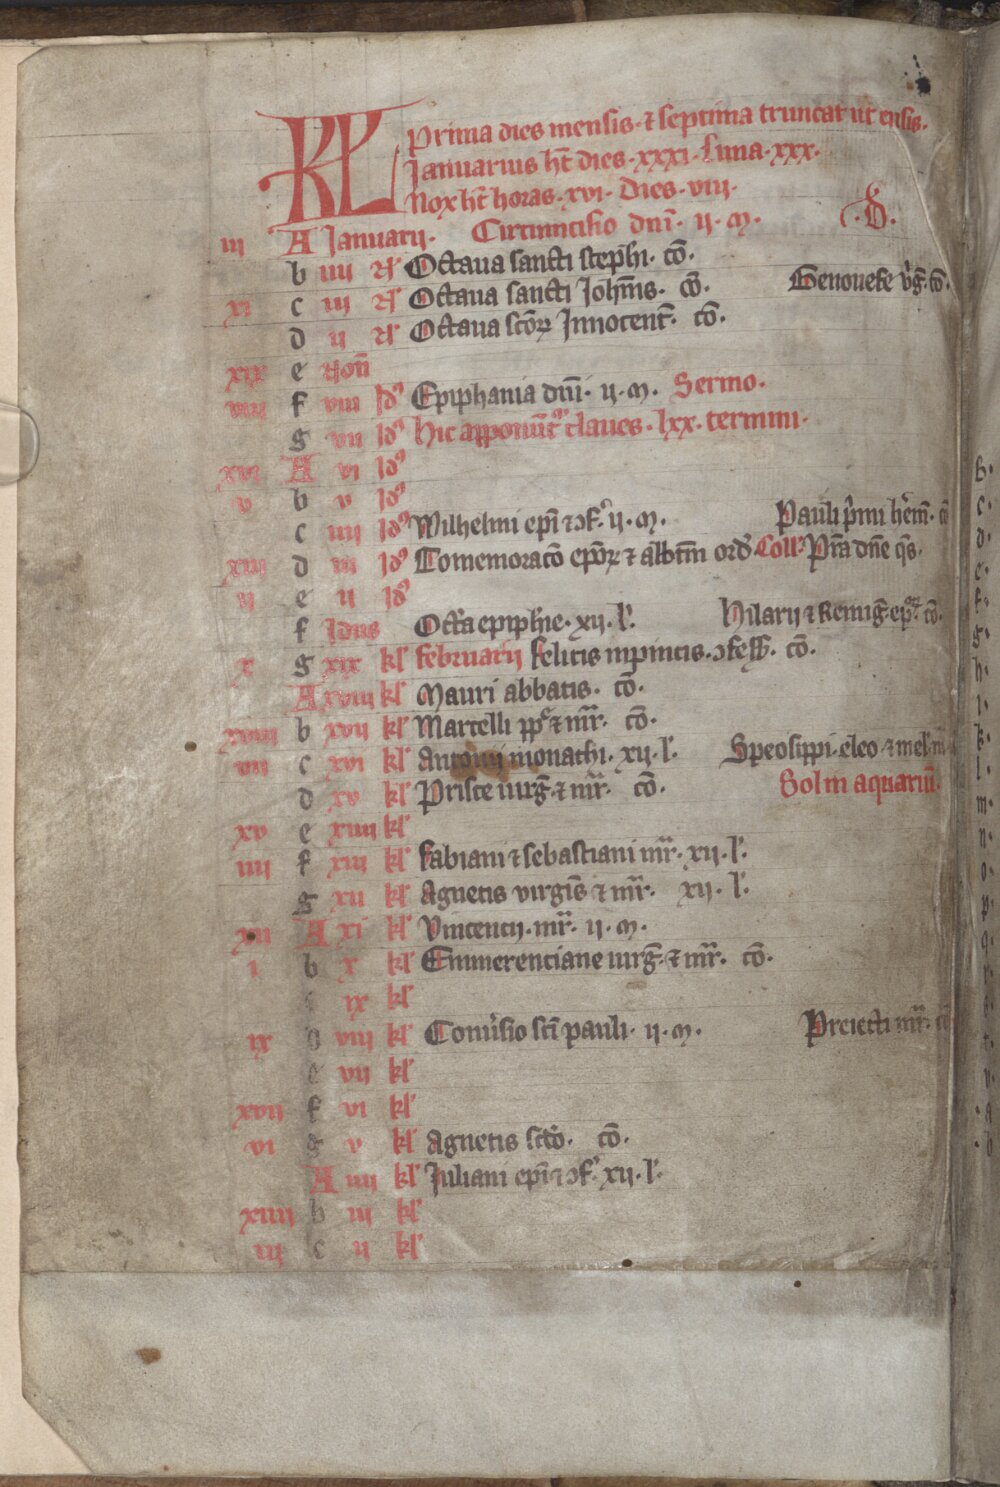 KL Prima dies mensis · ⁊ septima truncat ut ensis.
Januarius ht̄ dies · xxxi · Luna · xxx ·
Nox ht̄ horas · xvi · Dies · viii ·
iii A Januarii · Circumcisio dnī · ii · m · D ·
b iiii N̄ Octaua sancti stephi · cō · Genouefe v̓ḡ · cō ·
xi c iii N̄ Octaua sancti Joh̄nis · cō ·
d ii N̄ Octaua scōꝝ Innocent̄ · cō ·
xix e Non̄
viii f viii Idꝰ Epiphania dnī · ii · m · Sermo ·
g vii Idꝰ Hic apponūt̉ claues · lxx · termini ·
xvi A vi Idꝰ
v b v Idꝰ
c iiii Idꝰ Wilhelmi epī ⁊ ↄf · ii · m · Pauli p̓mi h̓em̄ · c̄
xiii d iii Idꝰ Comemoracō epōꝝ ⁊ abbtm̄ ord̓ · Coll̓ · Pr̄a dn̄e qs̄ ·
ii e ii Idꝰ
f Idus Octā epiph̄ie · xii · l̓ · Hilarii ⁊ Remiḡ · ep̄ · cō ·
x g xix kl̓ februarii felicis inpincis · ↄfess̄ · cō ·
A xviii kl̓ Mauri abbatis · cō ·
xviii b xvii kl̓ Marcelli pp̄ ⁊ mr̄ · cō ·
vii c xvi kl̓ Antonii monachi · xii · l̓ · Speosippi · eleo · ⁊ mel · m̄
d xv kl̓ Prisce uirḡ · ⁊ mr̄ · cō · Sol in aquariū ·
xv e xiiii kl̓
iiii f xiii kl̓ Fabiani ⁊ sebastiani mr̄ · xii · l̓ ·
g xii kl̓ Agnetis virgis̄ ⁊ mr̄ · xii · l̓ ·
xii A xi kl̓ Vincencii · mr̄ · ii · m ·
i b x kl̓ Emmerenciane uirḡ · ⁊ mr̄ · cō ·
c ix kl̓
ix d viii kl̓ Conu̓sio scī pauli · ii · m · Preiecti mr̄ · cō
e vii kl̓
xvii f vi kl̓
vi g v kl̓ Agnetis scd̓o · cō ·
A iiii kl̓ Juliani epī ⁊ ↄf̓ · xii · l̓ ·
xiiii b iii kl̓
iii c ii kl̓